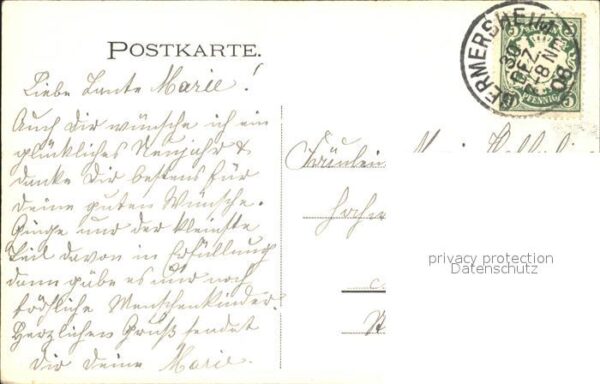 POSTKARTE.
GERMERSHEIM
30 DEZ.
8 NM
08
5 PFENNIG 5
Liebe Tante Marie!
Auch Dir wünsche ich ein
glückliches Neujahr &
danke Dir bestens für
Deine guten Wünsche.
Ginge nur der kleinste
Teil davon in Erfüllung
dann gäbe es nur noch
fröhliche Menschenkinder.
Herzlichen Gruß sendet
Dir Deine Marie.
Fräulein
privacy protection
Datenschutz